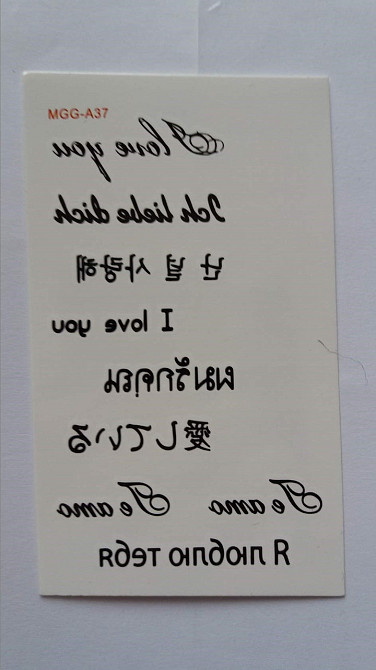 MGG-A37
I love you
Ich liebe dich
난 널 사랑해
I love you
ผมรักคุณ
愛している
Te amo Te amo
Я люблю тебя